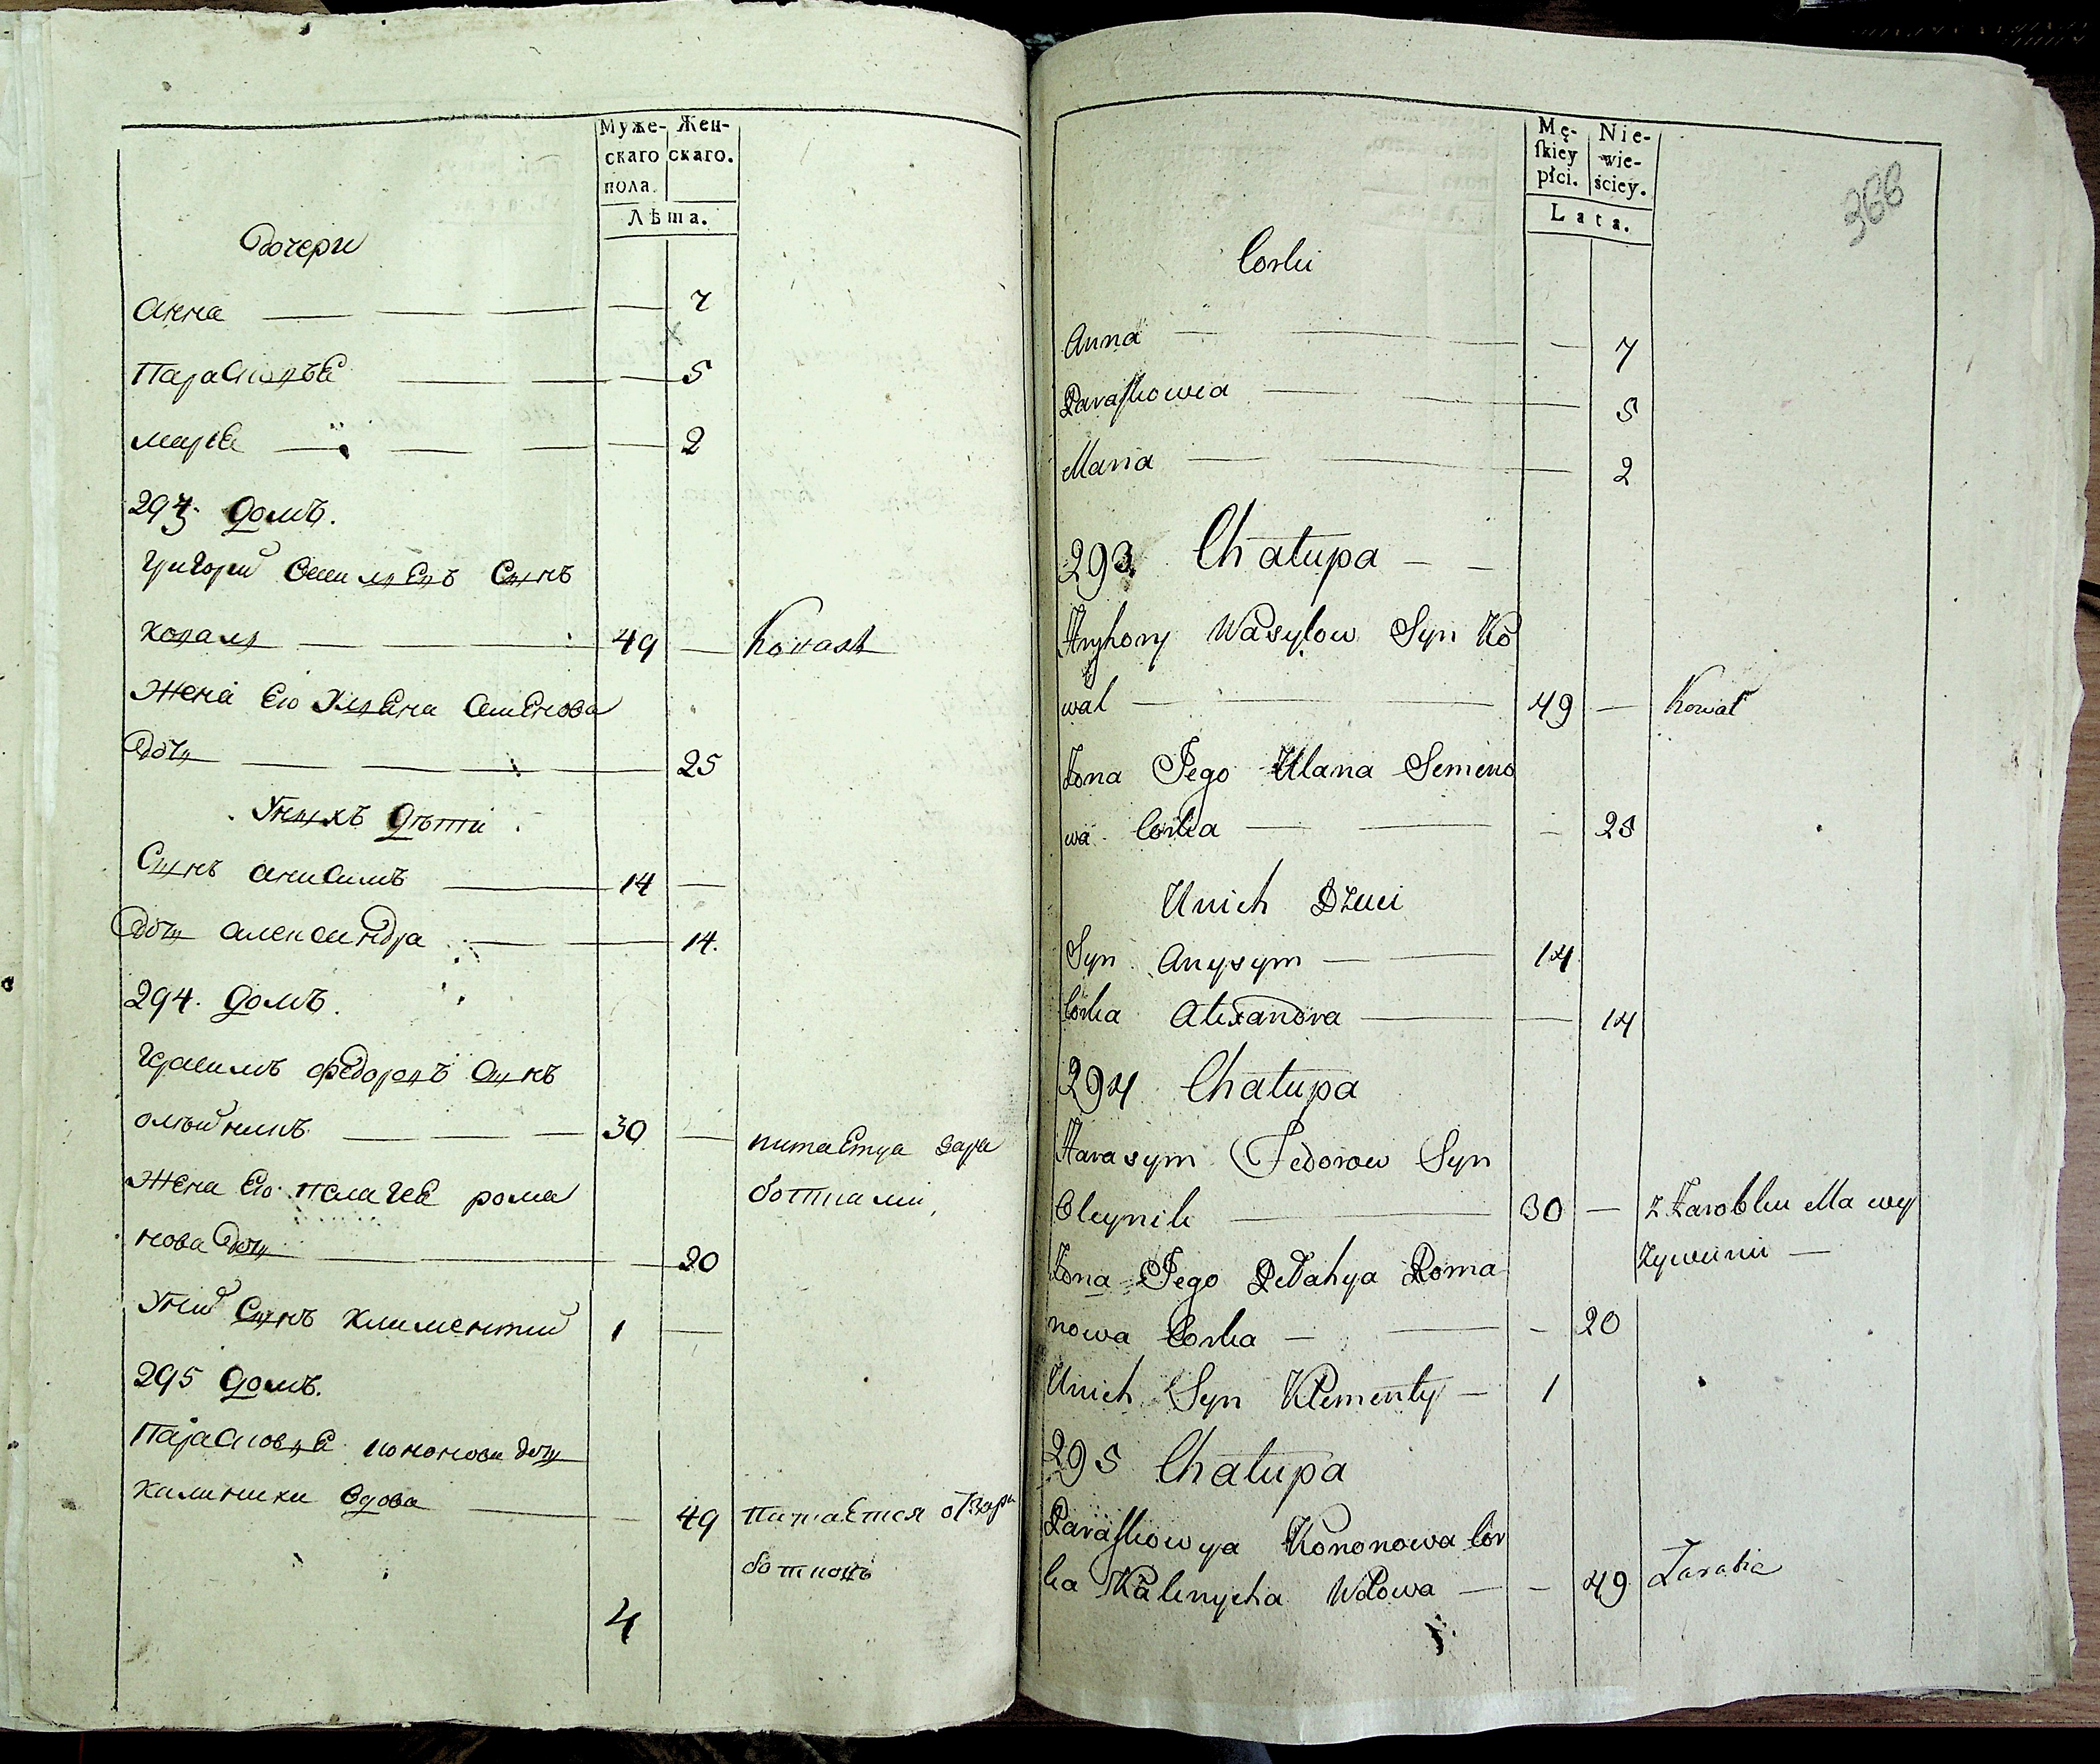 Муже-
скаго
пола.
Жен-
скаго.
Лѣта.
Дочери
Анна — — — — 7
Парасковѣа — — — 5
Мариа — — — — 2
293. Домъ.
Григорий Василиевъ Сынъ
Коваль — — — 49 — Kowal
Жена Его Улиена Семенова
Дочь — — — — 25
Унихъ Дѣти
Сынъ Анисимъ — 14 —
Дочь Александра — — 14.
294. Домъ.
Герасимъ Федоровъ Сынъ
Олѣйникъ — — — 30 — питается зара
Жена Его Пелагеа Рома
ботками,
нова Дочь — — 20
Уний Сынъ Климентий 1 —
295 Домъ.
Парасковиа Кононова дочь
Калиниха Вдова — — 49 питается от зара
ботковъ
4
Mę-
ſkiey
płci.
Nie-
wie-
ściey.
Lata.
366
Corki
Anna — — — — 7
Paraſkowia — — — 5
Maria — — — 2
293. Chałupa — —
Hryhory Wasylow Syn Ko
wal — — 49 — Kowal
Zona Jego Ulana Semeno
wa Corka — — — 25
Unich Dzieci
Syn Anysym — — 14
Corka Alexandra — — 14
294 Chałupa
Harasym Fedorow Syn
Oleynik — 30 — z Zarobku Ma wy
Zywienie —
Zona Jego Pelahya Roma
nowa Corka — — — 20
Unich Syn Klementy — 1
295 Chałupa
Paraſkowya Kononowa Cor
ka Kalenycha Wdowa — — 49 Zarabia